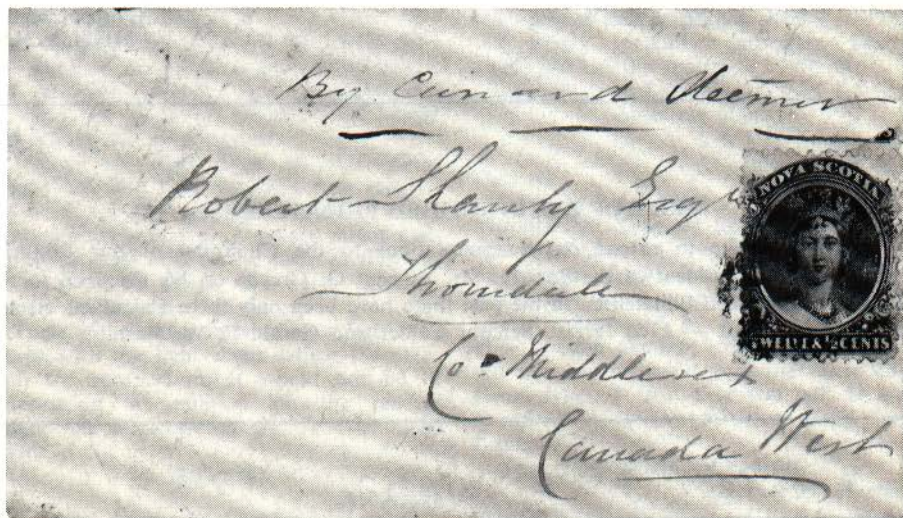 By Cunard Steamer
Robert Shanly Esqr
Thorndale
Co= Middlesex
Canada West
NOVA SCOTIA
TWELVE & ½ CENTS